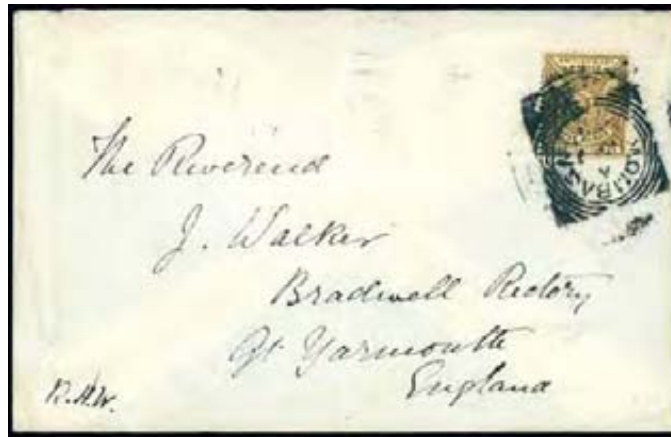 MOMBASA
A
The Reverend
J. Walker
Bradwell Rectory
Gt Yarmouth
England
R.H.W.